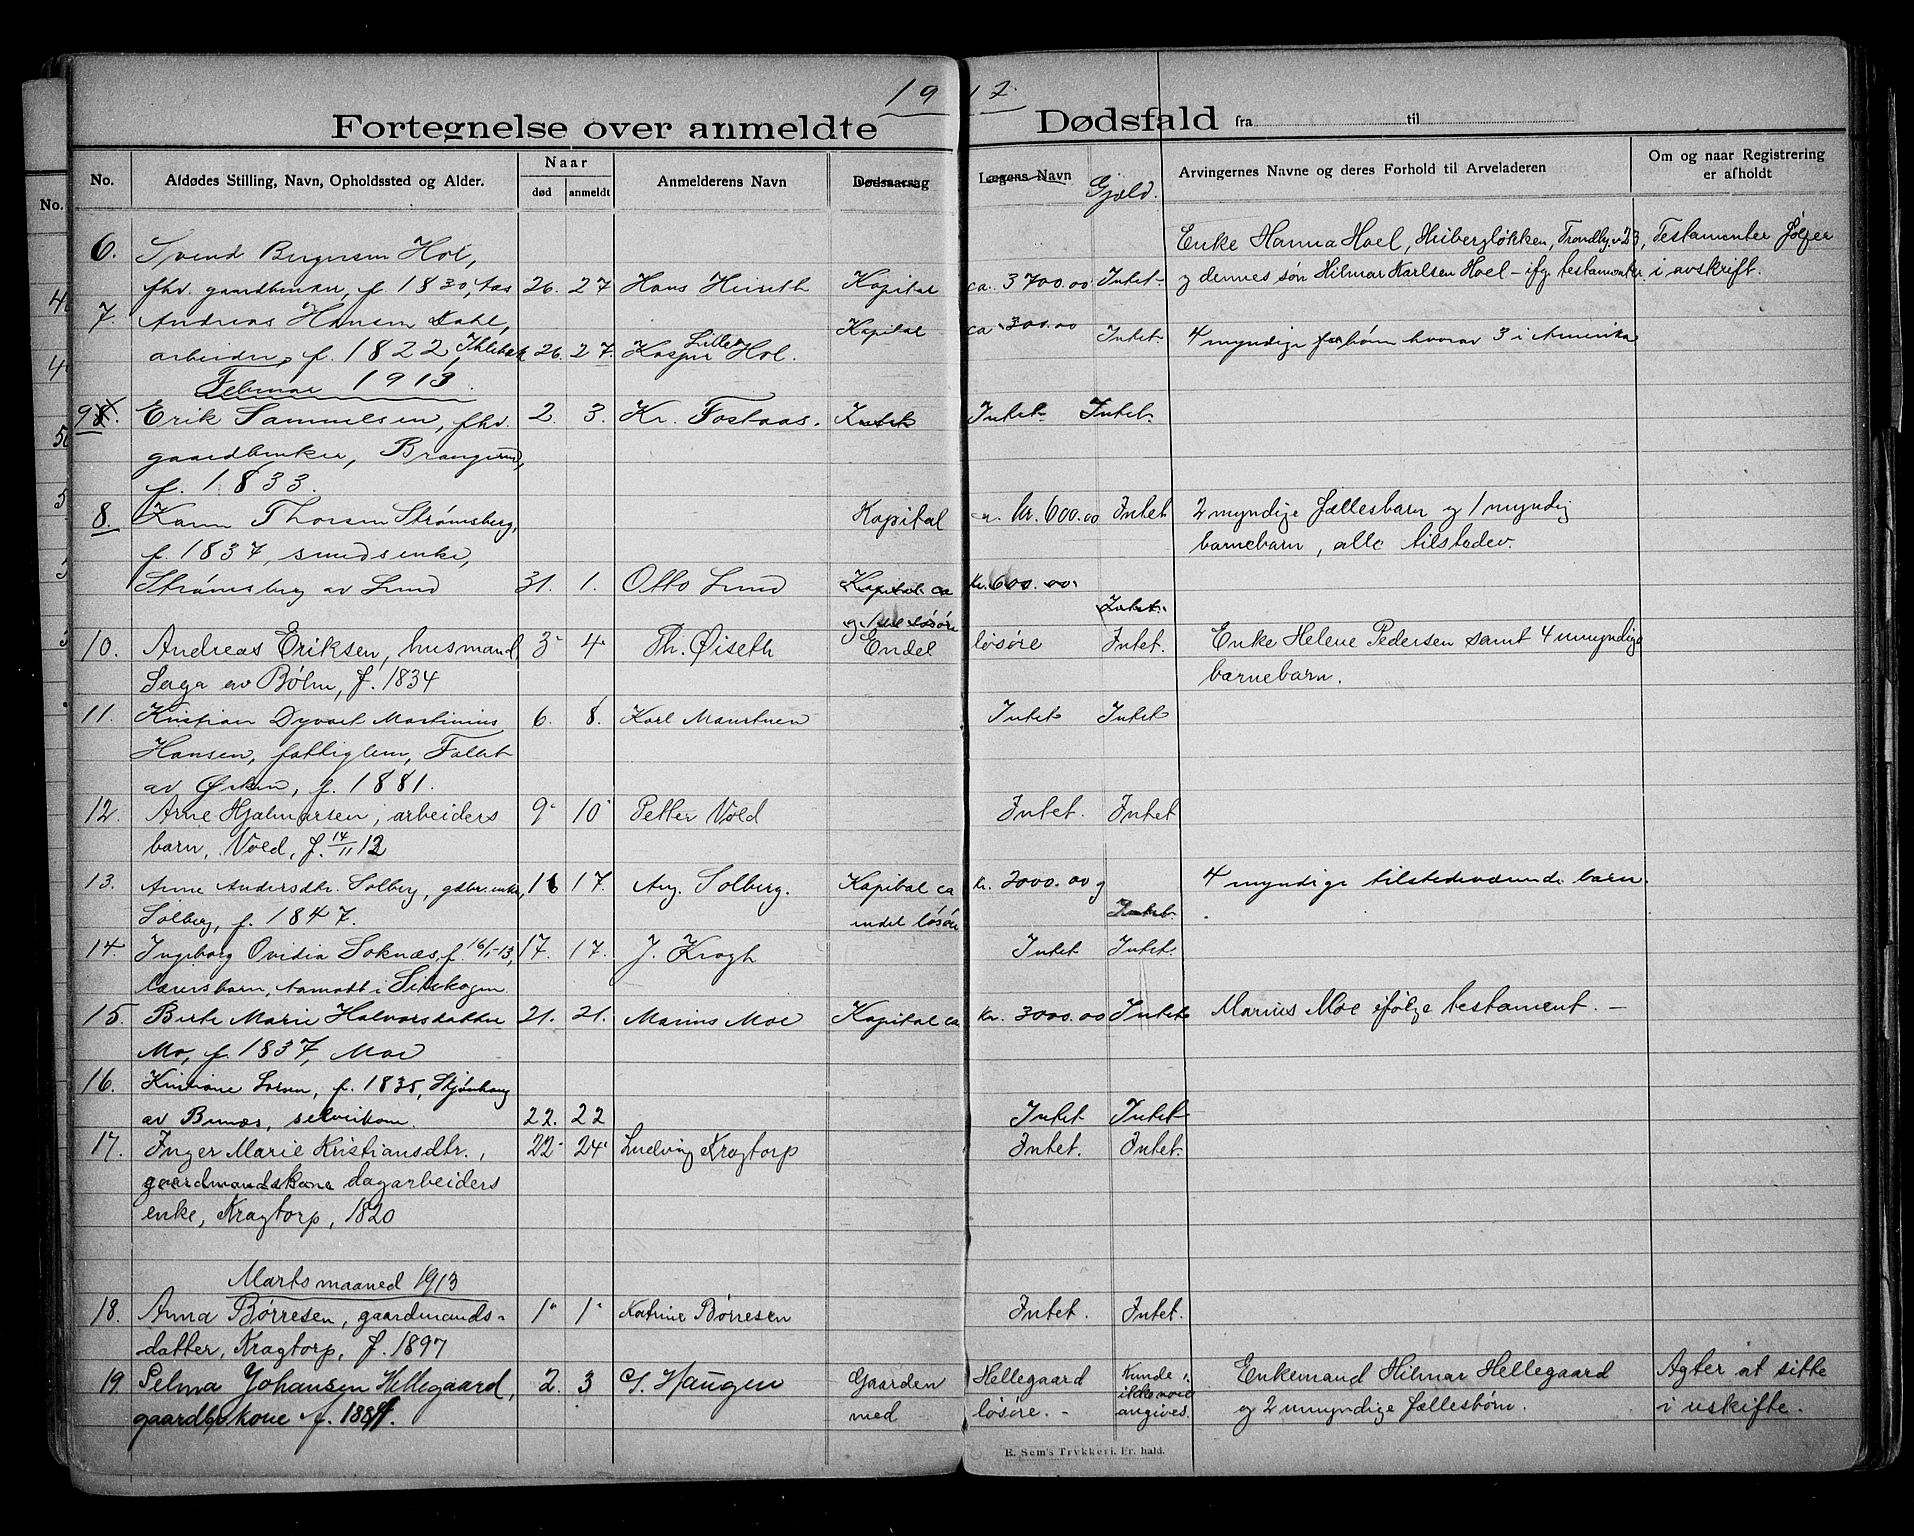 19 17.
Fortegnelse over anmeldte Dødsfald fra til
No. Afdødes Stilling, Navn, Opholdssted og Alder. Naar død anmeldt Anmelderens Navn Dødsaarsag Lægens Navn Gjæld. Arvingernes Navne og deres Forhold til Arveladeren Om og naar Registrering er afholdt
6. Svend Hol, Enke Hanna Hoel, Trondhj.v. 23, Testamenter følger
fhv. gaardbruker, f. 1830, 26. 27 Hans Kapital ca. 3700.00 Intet. og dennes søn Hilmar Karlsen Hoel - ifg. testamenter i avskrift.
7. Andreas Hansen Dahl, Kapital ca. 300.00
arbeider, f. 1822, 26. 27. Kasper Lille Hol. Intet. 4 myndige børn hvorav 3 i Amerika
Februar 1913.
9. Erik Samuelsen, fhv. 2. 3. Kr. Fostaas. Intet Intet. Intet.
gaardbruker,
f. 1833.
8. Karen Thorsen Strømsberg, Kapital ca. kr. 600.00 Intet 2 myndige fællesbarn og 1 myndig
f. 1837, smedsenke, barnebarn, alle tilstede.
Strømsberg av Lund 31. 1. Otto Lund Kapital ca kr. 600.00.
Intet.
10. Andreas Eriksen, husmand 3 4 Th. Øiseth Endel løsøre Intet. Enke Helene Pedersen samt 4 umyndige
av Bølm, f. 1834 barnebarn.
11. Kristian Dyvart Martinius 6. 8. Karl Intet Intet
Hansen, fattiglem,
av f. 1881.
12. Arne Hjalmarsen, arbeiders 9 10 Petter Vold Intet. Intet
barn, Vold, f. 14/11 12
13. Anne Andersdtr. Solberg, gdbr. enke, 16 17. Aug. Solberg. Kapital ca kr. 2000.00 og 4 myndige tilstedeværende barn.
Solberg, f. 1847. endel løsøre Intet.
14. Ingeborg Ovidia Soknæs, f. 16/1-13, 17. 17. J. Krogh Intet Intet.
barn,
15. Berte Marie Halvorsdatter 21. 21. Marius Moe Kapital ca kr. 3000.00 Intet Marius Moe ifølge testament. —
Mo, f. 1837, Moe
16. Kristiane Larsen, f. 1835,
av 22. 22 Intet Intet
17. Inger Marie Kristiansdtr., 22 24 Ludvig Kragtorp Intet. Intet.
gaardmandskone dagarbeiders
enke, Kragtorp, 1820
Marts maaned 1913
18. Anna Børresen, gaardmands- 1 1 Katrine Børresen Intet. Intet.
datter, Kragtorp, f. 1897
19. Selma Johansen Hellegaard, 2. 3 Haugen Gaarden Hellegaard Kunde Enkemand Hilmar Hellegaard Agter at sitte
gaardbr.kone f. 1884. med løsøre. - ikke angives. og 2 umyndige fællesbørn. i uskifte.
E. Sem's Trykkeri, Fr. hald.